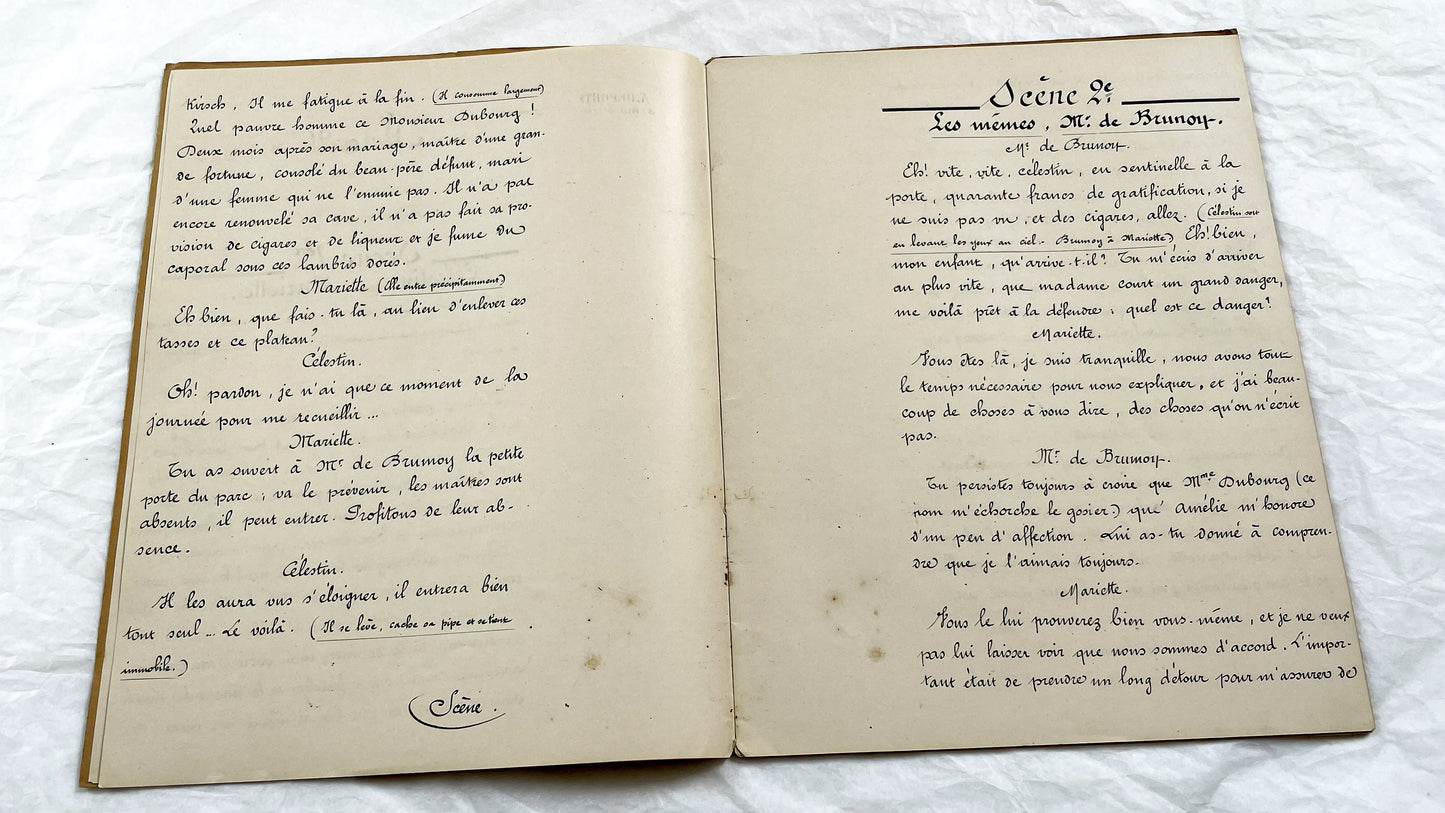 Kirsch, Il me fatigue à la fin. (Il consomme largement)
Quel pauvre homme ce Monsieur Dubourg !
Deux mois après son mariage, maître d'une gran-
de fortune, consolé du beau-père défunt, mari
d'une femme qui ne l'ennuie pas. Il n'a pas
encore renouvelé sa cave, il n'a pas fait sa pro-
vision de cigares et de liqueur et je fume du
caporal sous ces lambris dorés.
Mariette (Elle entre précipitamment)
Eh bien, que fais-tu là, au lieu d'enlever ces
tasses et ce plateau?
Célestin.
Oh! pardon, je n'ai que ce moment de la
journée pour me recueillir...
Mariette.
Tu as ouvert à Mr de Brunoy la petite
porte du parc; va le prévenir, les maîtres sont
absents, il peut entrer. Profitons de leur ab-
sence.
Célestin.
Il les aura vus s'éloigner, il entrera bien
tout seul... Le voilà. (Il se lève, cache sa pipe et se tient
immobile.)
Scène.
Scène 2e
Les mêmes, Mr. de Brunoy.
Mr de Brunoy.
Eh! vite, vite, célestin, en sentinelle à la
porte, quarante francs de gratification, si je
ne suis pas vu, et des cigares, allez. (Célestin sort
en levant les yeux au ciel.- Brunoy à Mariette) Eh! bien,
mon enfant, qu'arrive-t-il? Tu m'écris d'arriver
au plus vite, que madame court un grand danger,
me voilà prêt à la défendre; quel est ce danger?
Mariette.
Vous êtes là, je suis tranquille, nous avons tout
le temps nécessaire pour nous expliquer, et j'ai beau-
coup de choses à vous dire, des choses qu'on n'écrit
pas.
Mr. de Brunoy.
Tu persistes toujours à croire que Mme Dubourg (ce
nom m'échorche le gosier.) que Amélie m'honore
d'un peu d'affection. Lui as-tu donné à compren-
dre que je l'aimais toujours.
Mariette.
Vous le lui prouverez bien vous-même, et je ne veux
pas lui laisser voir que nous sommes d'accord. L'impor-
tant était de prendre un long détour pour m'assurer de